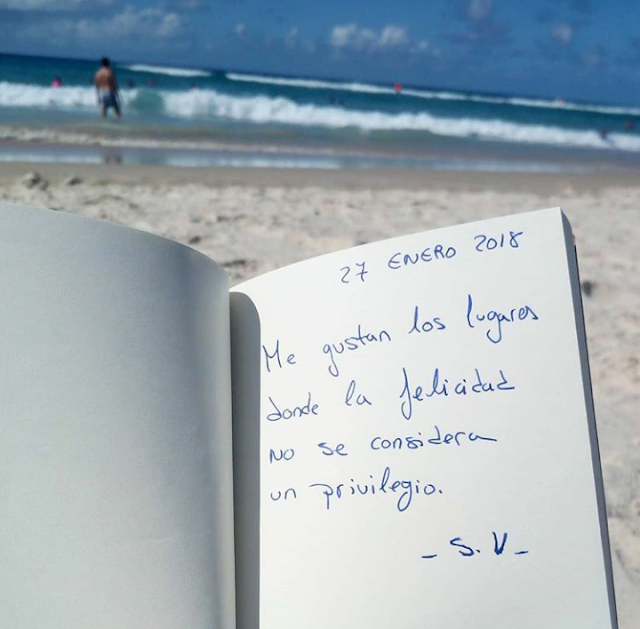 27 ENERO 2018
Me gustan los lugares
donde la felicidad
NO se considera
un privilegio.
- S. V -